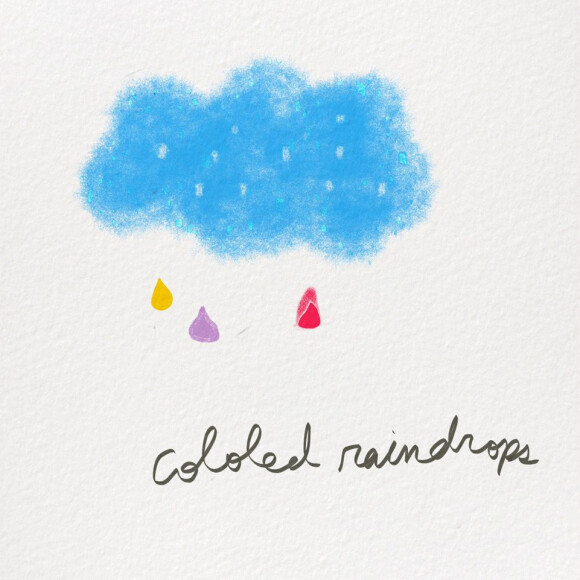 cololed raindrops